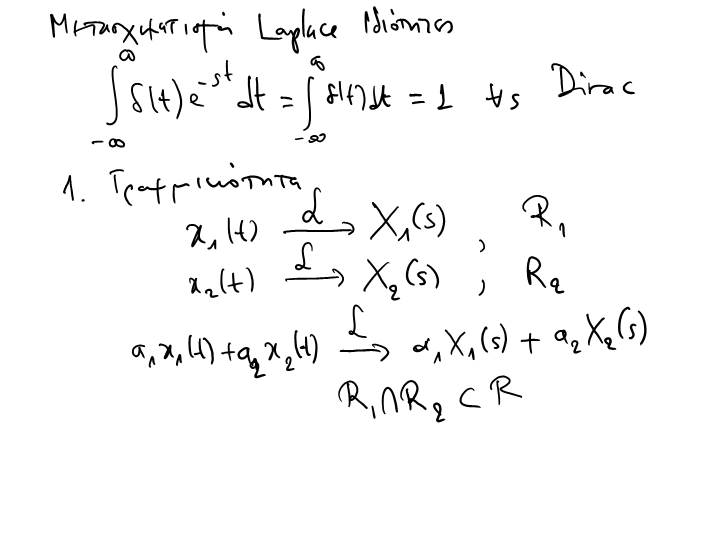 Μετασχηματισμοί Laplace Ιδιότητες
∫_{-∞}^{∞} δ(t) e^{-st} dt = ∫_{-∞}^{∞} δ(t) dt = 1 ∀s Dirac
1. Γραμμικότητα
x₁(t) —ℒ→ X₁(s) , R₁
x₂(t) —ℒ→ X₂(s) , R₂
a₁x₁(t) + a₂x₂(t) —ℒ→ a₁X₁(s) + a₂X₂(s)
R₁∩R₂ ⊂ R